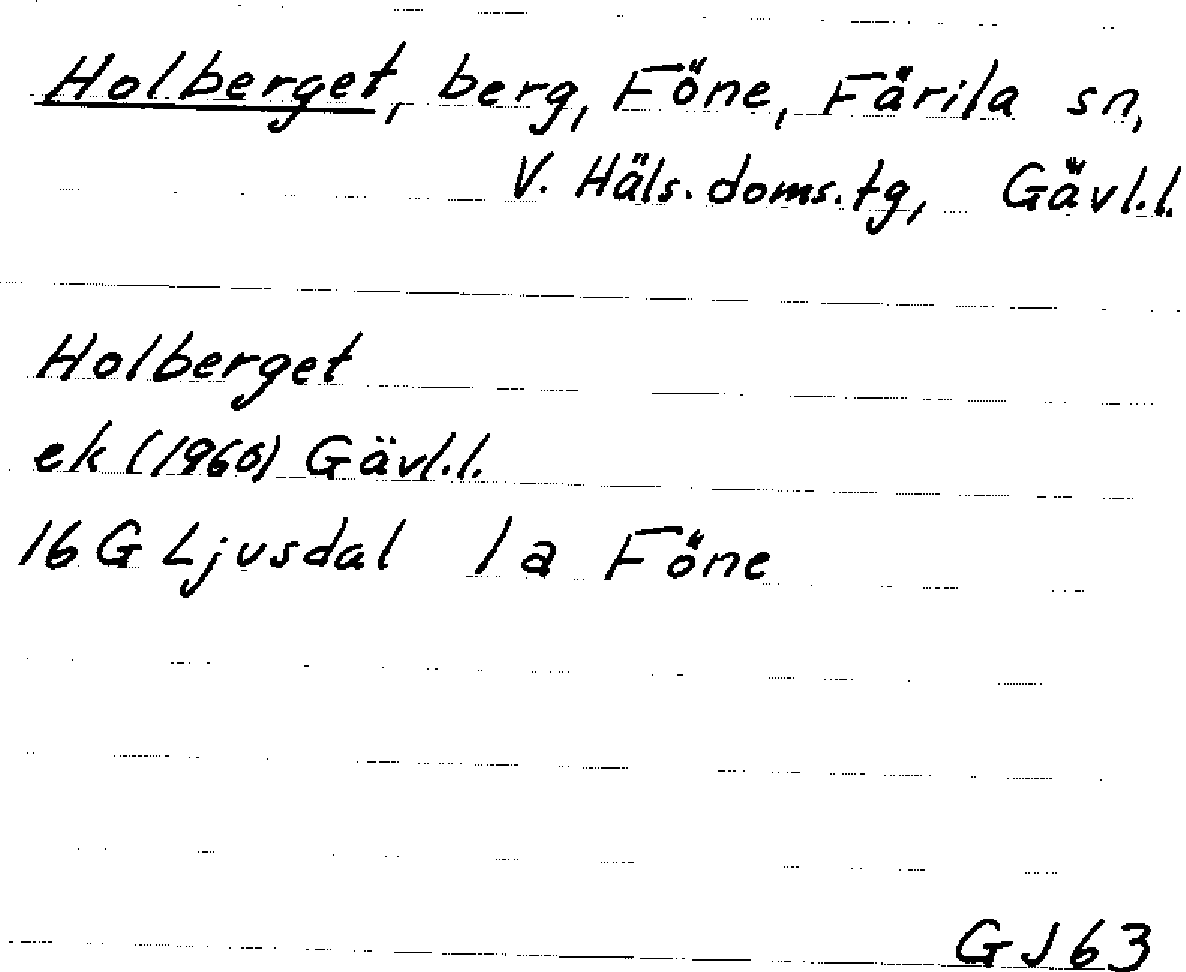 Holberget, berg, Föne, Färila sn,
V. Häls. doms. tg, Gävl.l.
Holberget
ek (1960) Gävl.l.
16 G Ljusdal 1 a Föne
GJ 63